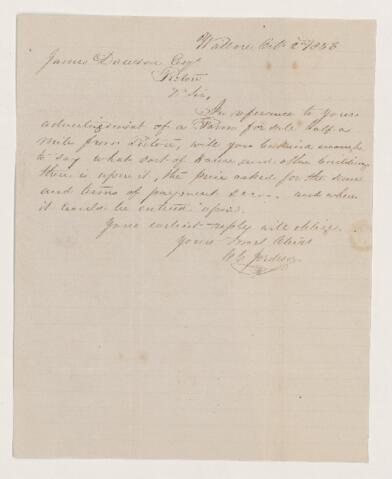 Wallace Octr 2nd 1858
James Dawson Esqr
Pictou
Dr Sir,
In reference to your
advertisement of a Farm for sale half a
mile from Pictou, will you be kind enough
to say what sort of house and other buildings
there is upon it, the price asked for the same
and terms of payment &c. and when
it could be entered upon.
Your earliest reply will oblige
Yours